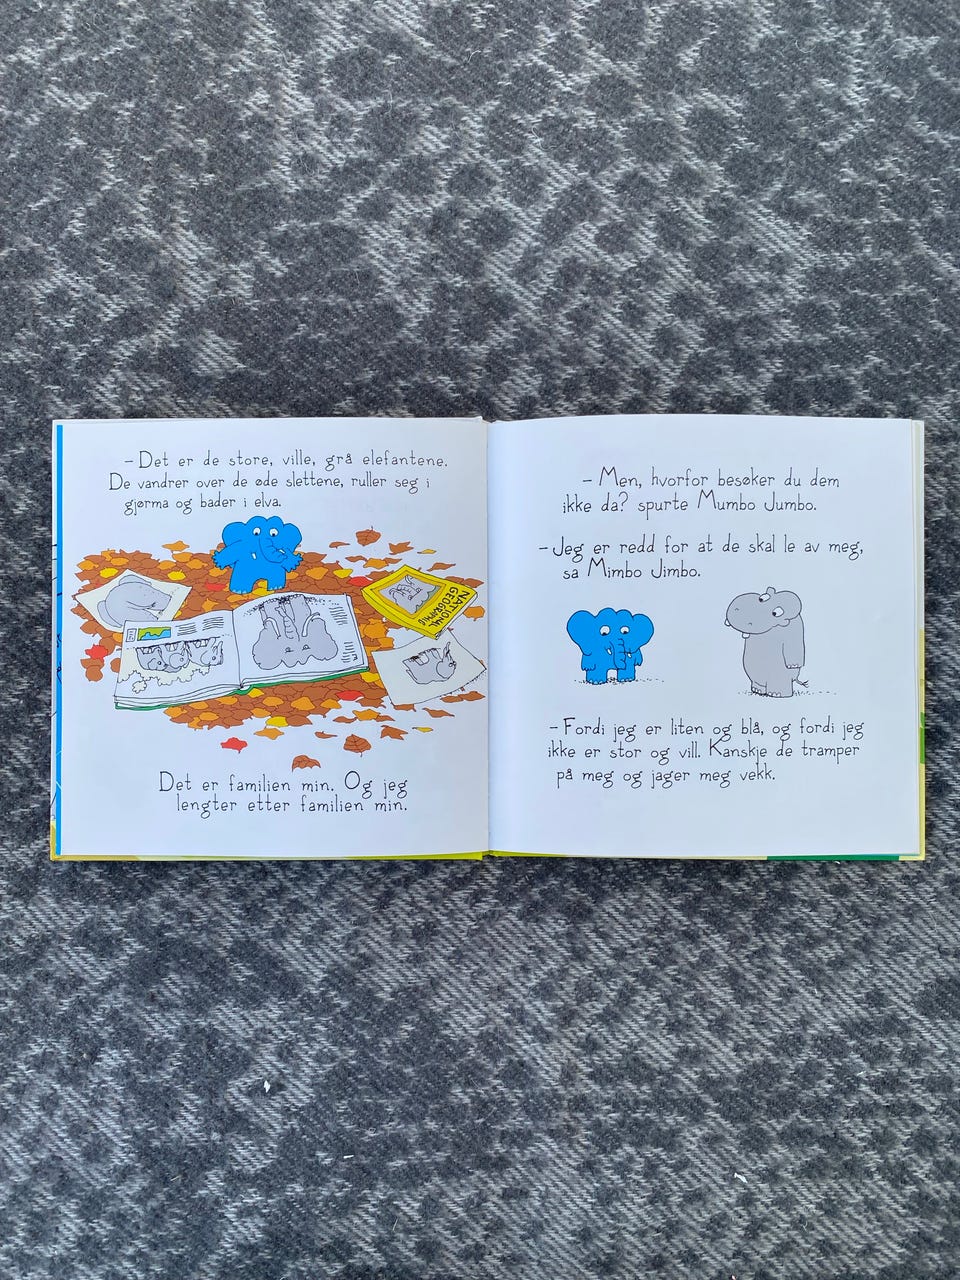 – Det er de store, ville, grå elefantene.
De vandrer over de øde slettene, ruller seg i
gjørma og bader i elva.
NATIONAL
GEOGRAPHIC
Det er familien min. Og jeg
lengter etter familien min.
– Men, hvorfor besøker du dem
ikke da? spurte Mumbo Jumbo.
– Jeg er redd for at de skal le av meg,
sa Mimbo Jimbo.
– Fordi jeg er liten og blå, og fordi jeg
ikke er stor og vill. Kanskje de tramper
på meg og jager meg vekk.